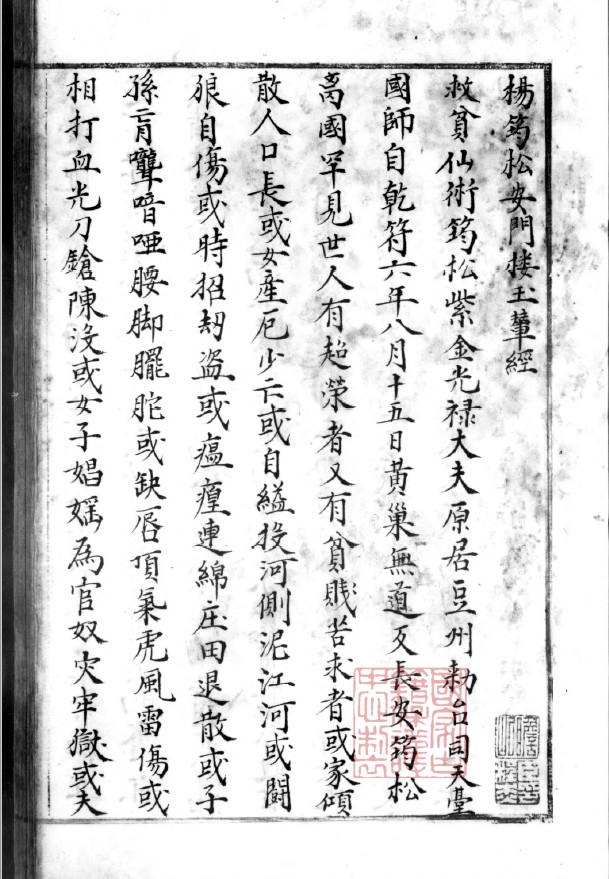 楊筠松安門楼玉輦經
救貧仙術筠松紫金光禄大夫原居豆州勅台司天臺
國師自乾符六年八月十五日黄巢無道反長安筠松
离國罕見世人有超荣者又有貧賎苦求者或家傾
散人口長或女産厄少亡或自縊投河側泥江河或鬪
狼自傷或時招刼盗或瘟瘽連綿庄田退散或子
孫盲聾喑啞腰脚臞駝或缺唇頂氣虎風雷傷或
相打血光刀鎗陳没或女子娼婬為官奴灾牢獄或天